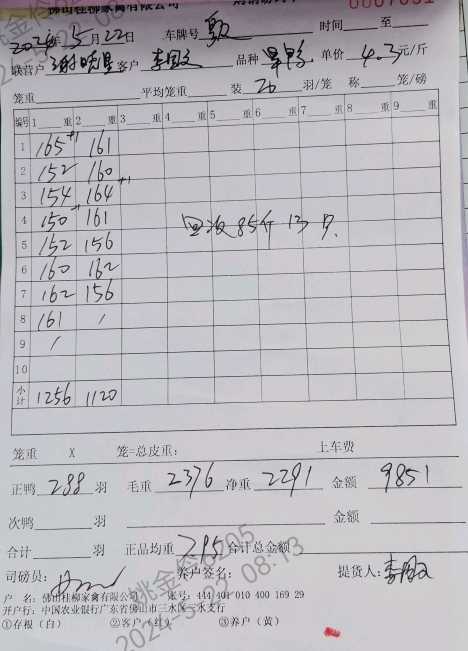 佛山桂柳家禽有限公司
2024年5月22日 车牌号 时间 至
联营户 客户 李国文 品种 旱鸭 单价 4.3 元/斤
笼重 平均笼重 装 26 羽/笼 称 笼/磅
编号 1 重 2 重 3 重 4 重 5 重 6 重 7 重 8 重 9 重
1 165 +1 161
2 152 160
3 154 164 +1
4 150 161
5 152 156
6 160 162
7 162 156
8 161 /
9 /
10
85斤 13只
小计 1256 1120
笼重 X 笼=总皮重: 上车费
正鸭 288 羽 毛重 2376 净重 2291 金额 9851
次鸭 羽 金额
合计 羽 正品均重 7.95 合计总金额
司磅员: 养户签名: 提货人: 李国文
户 名: 佛山桂柳家禽有限公司 账号: 444 401 010 400 169 29
开户行: 中国农业银行广东省佛山市三水区三水支行
①存根（白） ②客户（红） ③养户（黄）
2024-5-22 08:13